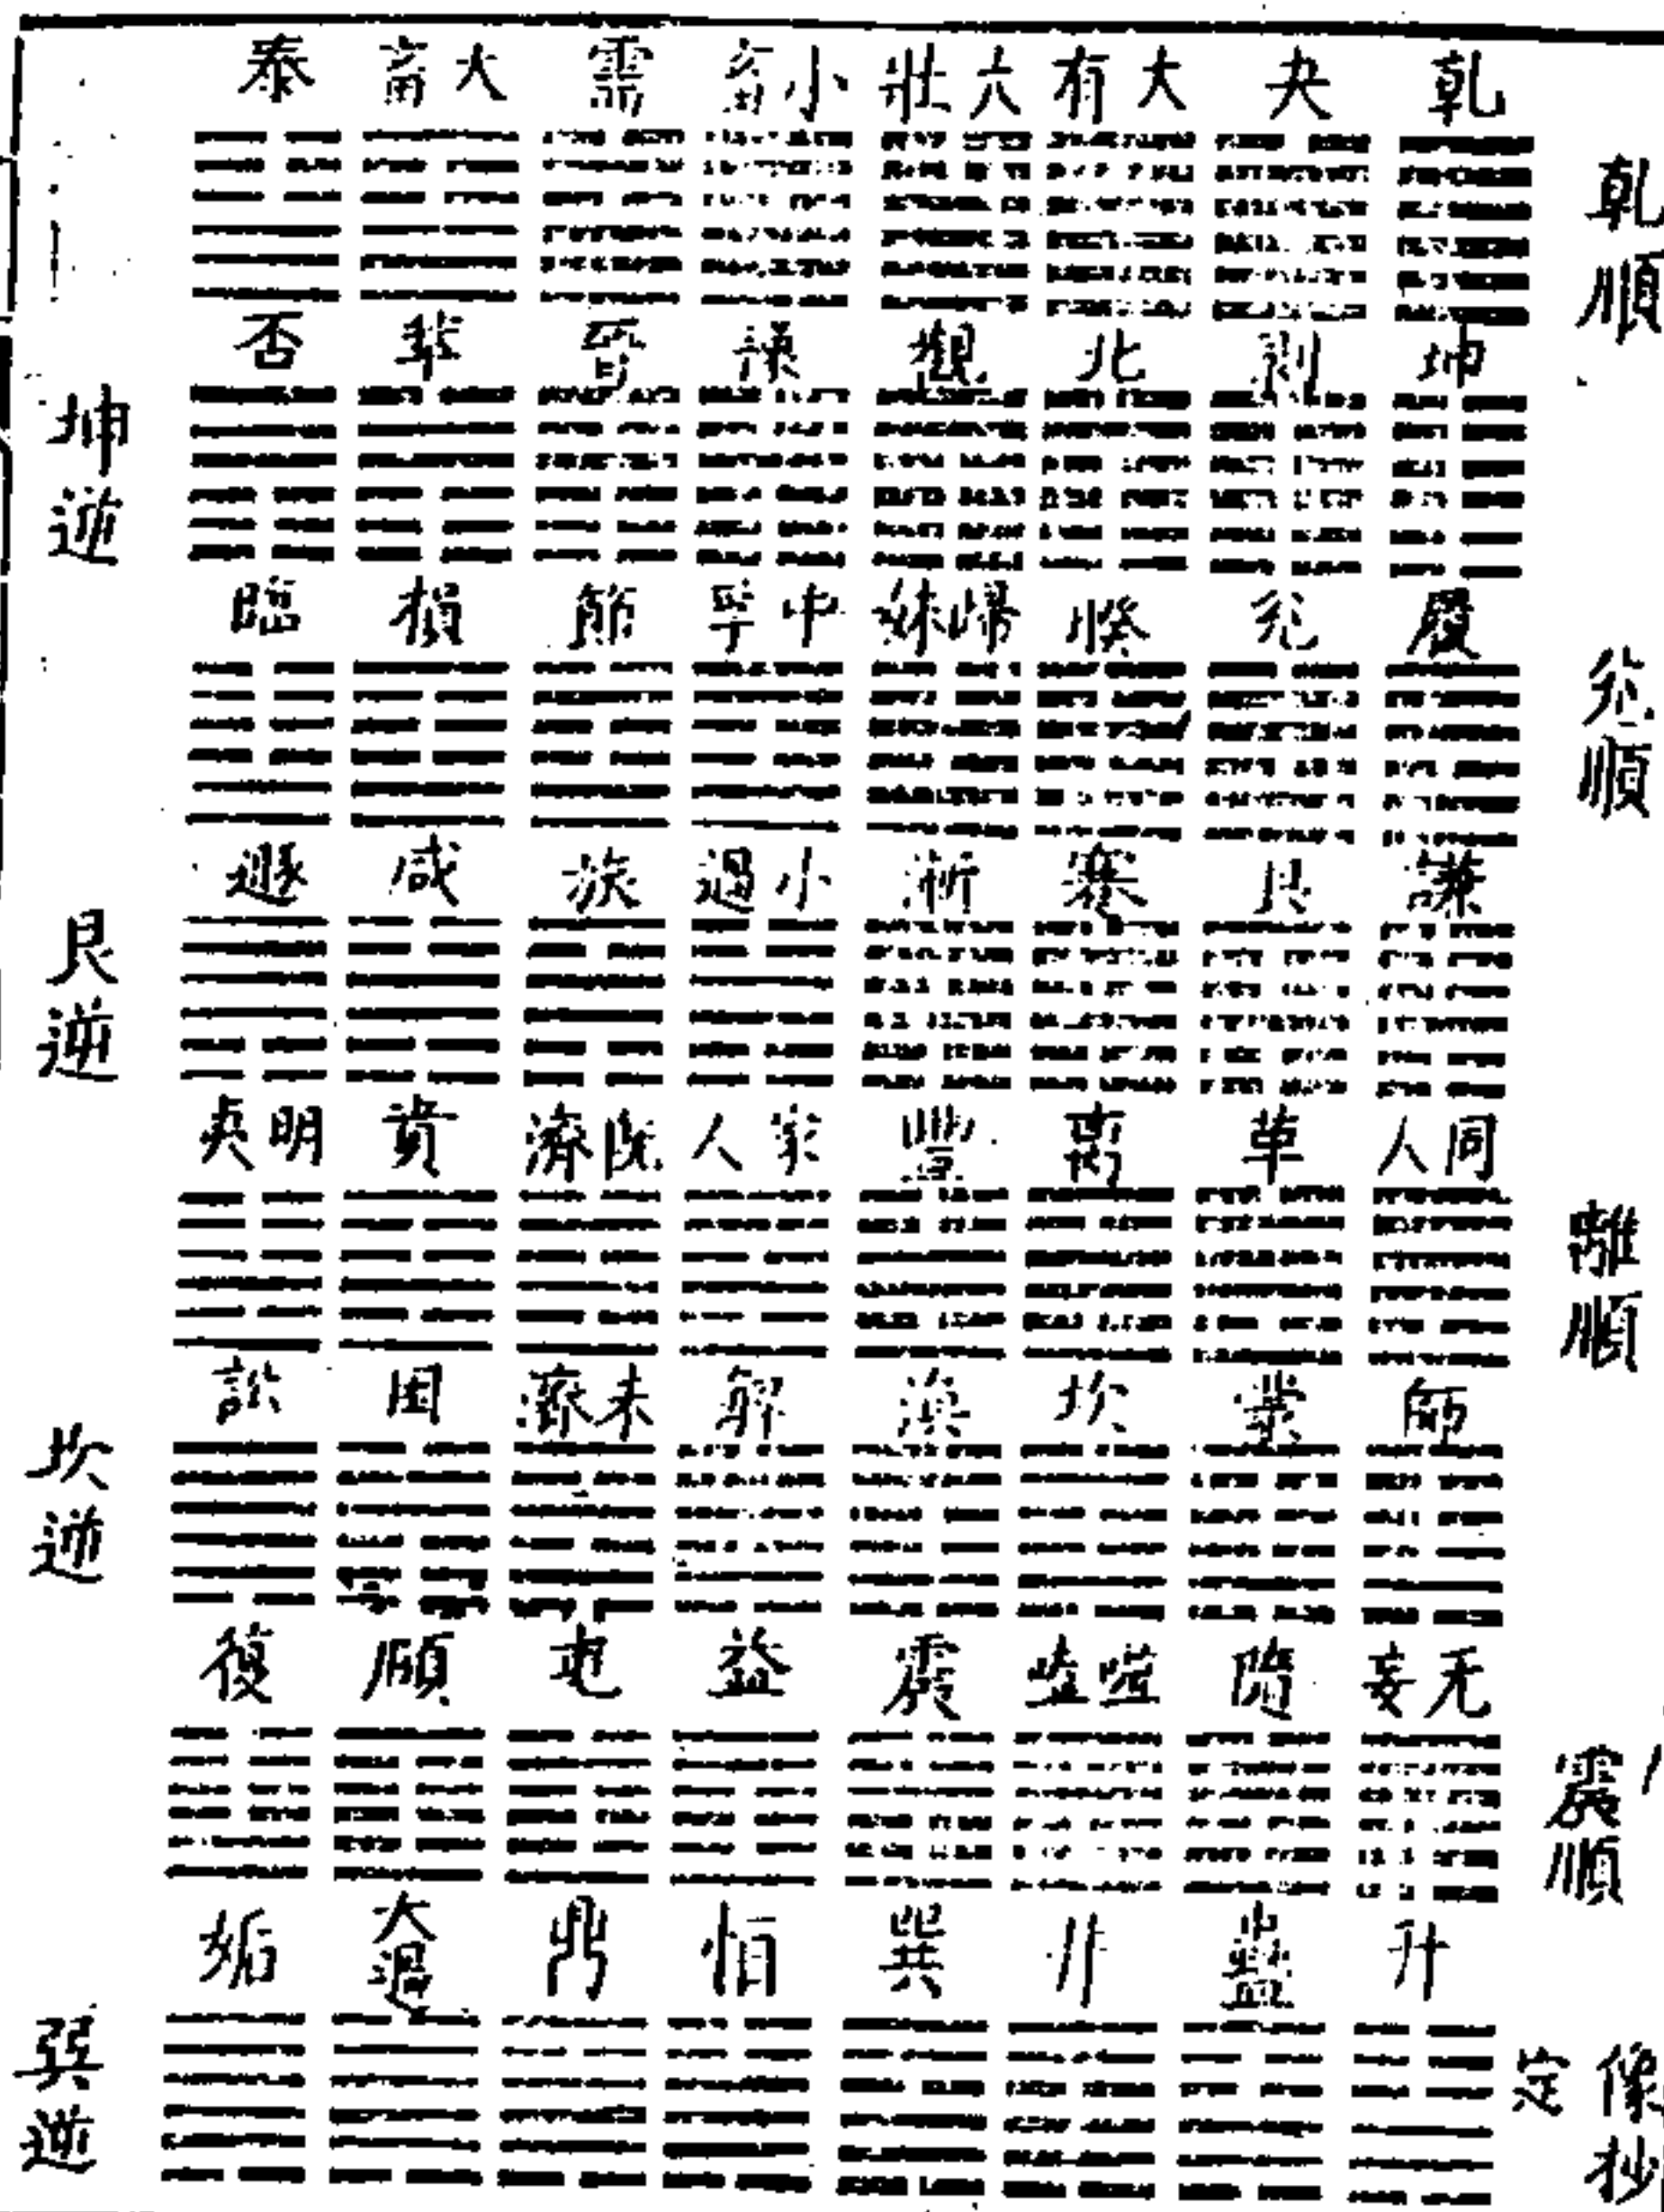 乾順
乾 夬 大有 大壯 小畜 需 大畜 泰
坤逆
坤 剝 比 觀 豫 晉 萃 否
兌順
履 兌 睽 歸妹 中孚 節 損 臨
艮逆
謙 艮 蹇 漸 小過 旅 咸 遯
離順
同人 革 离 豐 家人 既濟 賁 明夷
坎逆
師 蒙 坎 渙 解 未濟 困 訟
震順
无妄 隨 噬嗑 震 益 屯 頤 復
巽逆
升 蠱 井 巽 恒 鼎 大過 姤
像抄
定